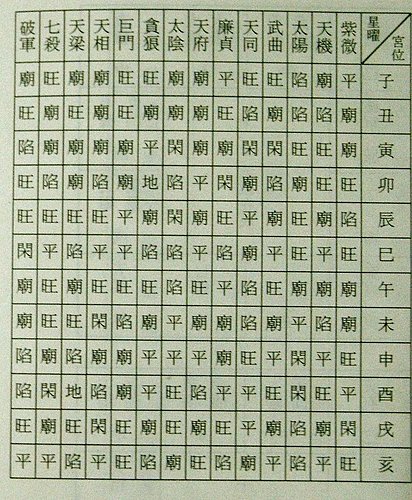 宮位 星曜 紫微 天機 太陽 武曲 天同 廉貞 天府 太陰 貪狼 巨門 天相 天梁 七殺 破軍
子 平 廟 陷 旺 旺 平 廟 廟 旺 旺 廟 廟 旺 廟
丑 廟 陷 陷 廟 陷 旺 廟 廟 廟 旺 廟 旺 廟 旺
寅 廟 旺 旺 閑 閑 廟 廟 閑 平 廟 廟 廟 廟 陷
卯 旺 旺 廟 陷 廟 閑 平 陷 地 廟 陷 廟 陷 旺
辰 陷 廟 旺 廟 平 旺 廟 閑 廟 平 旺 旺 旺 旺
巳 旺 平 旺 平 廟 陷 平 陷 陷 平 平 陷 平 閑
午 廟 廟 廟 旺 陷 平 旺 陷 旺 旺 旺 廟 旺 廟
未 廟 陷 平 廟 陷 廟 廟 平 廟 陷 閑 旺 旺 廟
申 旺 平 閑 平 旺 廟 平 平 平 廟 廟 陷 廟 陷
酉 平 旺 閑 旺 平 平 陷 旺 平 廟 陷 地 閑 陷
戌 閑 廟 陷 廟 平 旺 廟 旺 廟 旺 閑 旺 廟 旺
亥 旺 平 陷 平 廟 陷 旺 廟 陷 旺 平 陷 平 平